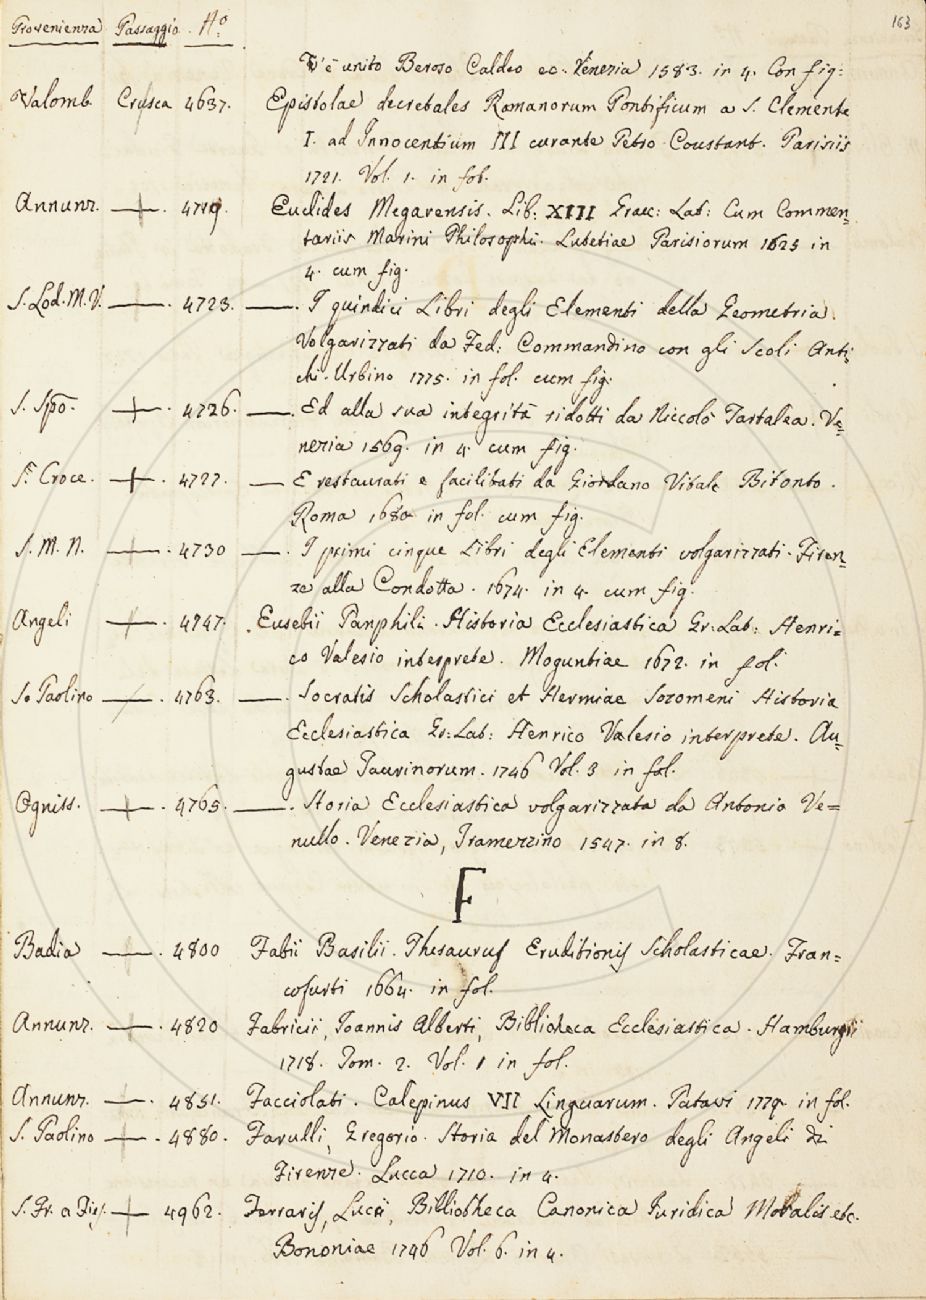 163
Provenienza Passaggio N.º
V'è unito Beroso Caldeo ec. Venezia 1583. in 4. Con fig:
Valomb. Crusca 4637. Epistolae decretales Romanorum Pontificum a S. Clemente
I. ad Innocentium III curante Petro Coustant. Parisiis
1721. Vol. 1. in fol.
Annunz. —. 4719. Euclides Megarensis. Lib: XIII Graec: Lat: Cum Commen=
tariis Marini Philosophi. Lutetiae Parisiorum 1625 in
4. cum fig.
S. Lod. M. V. —. 4723. —. I quindici Libri degli Elementi della Geometria.
Volgarizzati da Fed: Commandino con gli Scoli Anti=
chi. Urbino 1775. in fol. cum fig.
S. Spō. —. 4726. —. Ed alla sua integrità ridotti da Niccolò Tartalea. Ve=
nezia 1569. in 4. cum fig.
S. Croce. —. 4727. — E restaurati e facilitati da Giordano Vitale Bitonto.
Roma 1680 in fol. cum fig.
S. M. N. —. 4730 —. I primi cinque Libri degli Elementi volgarizzati. Firen=
ze alla Condotta. 1674. in 4. cum fig.
Angeli —. 4747. Eusebii Panphili. Historia Ecclesiastica Gr: Lat: Henri=
co Valesio interprete. Moguntiae 1672. in fol.
S. Paolino —. 4763. —. Socratis Scholastici et Hermiae Sozomeni Historia
Ecclesiastica Gr: Lat: Henrico Valesio interprete. Au=
gustae Taurinorum. 1746 Vol. 3 in fol.
Ogniss. —. 4765. —. Storia Ecclesiastica volgarizzata da Antonio Ve=
nullo. Venezia, Tramezzino 1547. in 8.
F
Badia —. 4800 Fabii Basilii. Thesaurus Eruditionis Scholasticae. Fran=
cofurti 1664. in fol.
Annunz. —. 4820 Fabricii, Joannis Alberti, Bibliotheca Ecclesiastica. Hamburgii
1718. Tom. 2. Vol. 1 in fol.
Annunz. —. 4851. Facciolati. Calepinus VII Linguarum. Patavi in fol.
S. Paolino —. 4880. Farulli, Gregorio. Storia del Monastero degli Angeli di
Firenze. Lucca 1710. in 4.
S. Fr. a Fies. — 4962. Ferraris, Lucii, Bibliotheca Canonica Juridica Moralis etc.
Bononiae 1746 Vol. 6. in 4.